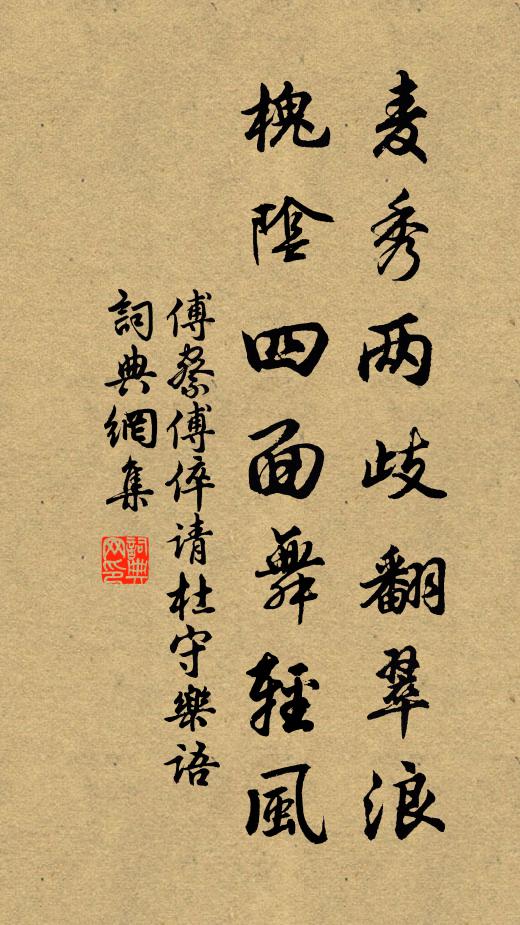 麦秀两歧翻翠浪
槐陰四面舞輕風
傅察傅倅请杜守樂语
詞典網集
詞典网印